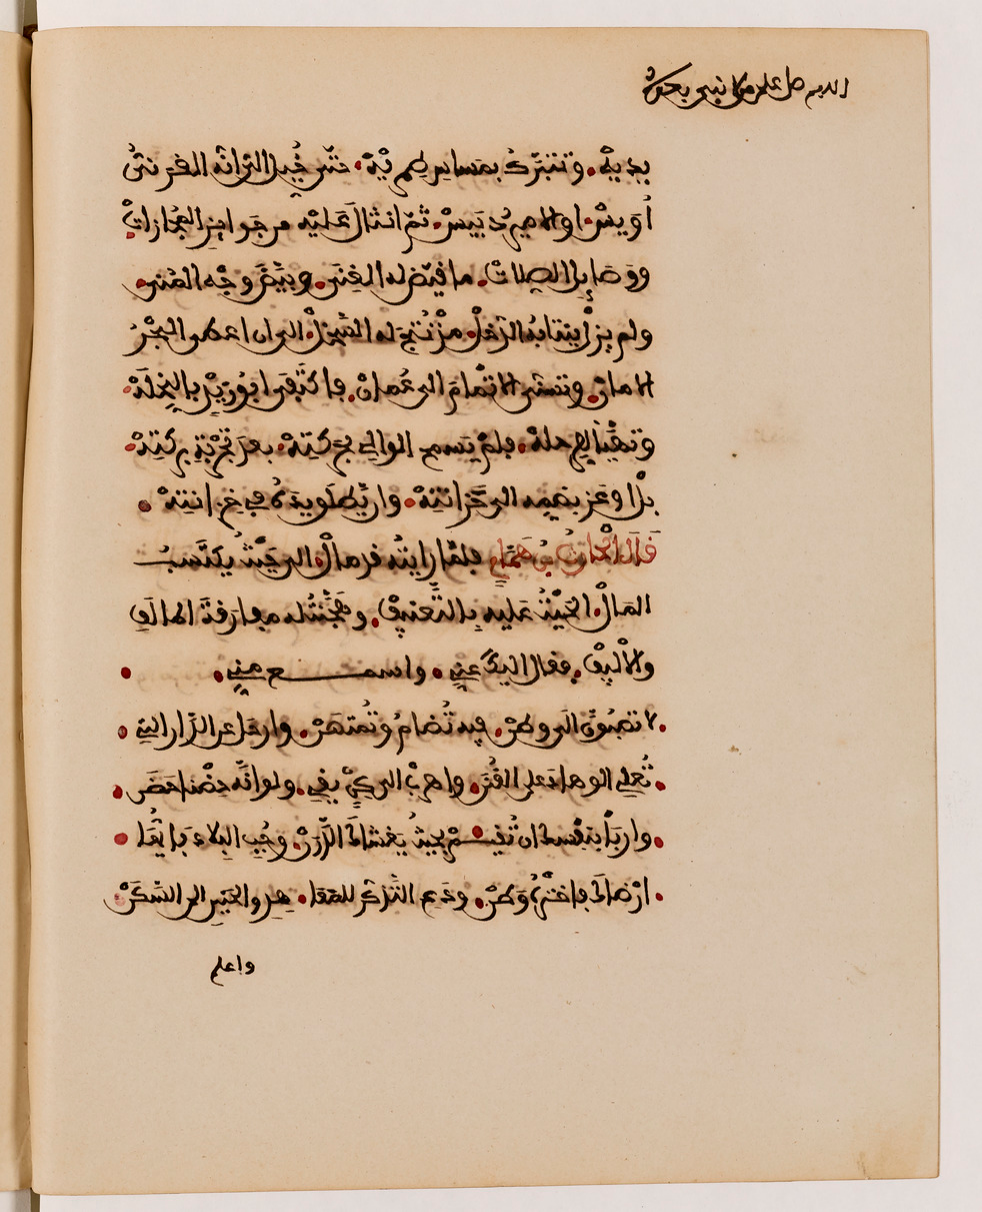 اللهم صل على من لا نبي بعده
بيديه. وتتبرك بمساس طمريه. حتى خيل الي انه القرني
أويس. او الامير دبيس. ثم انثال عليه من جوائز المجازات
ووصائل الصلات. ما قيض له الغنى. وبيض وجه المنى.
ولم يزل ينتابه الدخل. مذ نتج له السخل. الى ان اعطى البحر
الامان. وتسنى الاتمام الى عمان. فاكتفى ابو زيد بالنحلة.
وتهيأ للرحلة. فلم يسمح الوالي بحركته. بعد تجربة بركته.
بل اوعز بضمه الى حزانته. وان يطلق يده في خزانته.
قال الحارث بن همام فلما رايته قد مال. الى حيث يكتسب
المال. انحيت عليه بالتعنيف. وهجنت له مفارقة المالف
والاليف. فقال اليك عني. واسمع مني.
لا تصبون الى وطن. فيه تضام وتمتهن. وارحل عن الدار التي
تعلي الوهاد على القنن. واهرب الى كن يقي. ولو انه حضنا حضن
واربأ بنفسك ان تقيم بحيث يغشاك الدرن. وجب البلاد فايها
ارضاك فاختره وطن. ودع التذكر للمعاهد والحنين الى السكن
واعلم